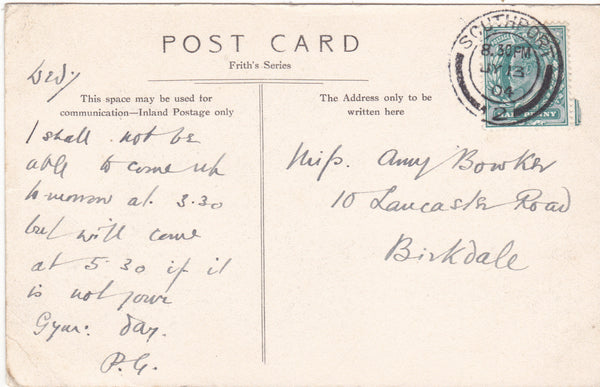 POST CARD
Frith's Series
Wedy
This space may be used for
communication—Inland Postage only
I shall not be
able to come up
tomorrow at 3.30
but will come
at 5.30 if it
is not your
Gym: day.
P.G.
The Address only to be
written here
Miss. Amy Bowker
10 Lancaster Road
Birkdale
SOUTHPORT
8.30PM
13
04
HALFPENNY